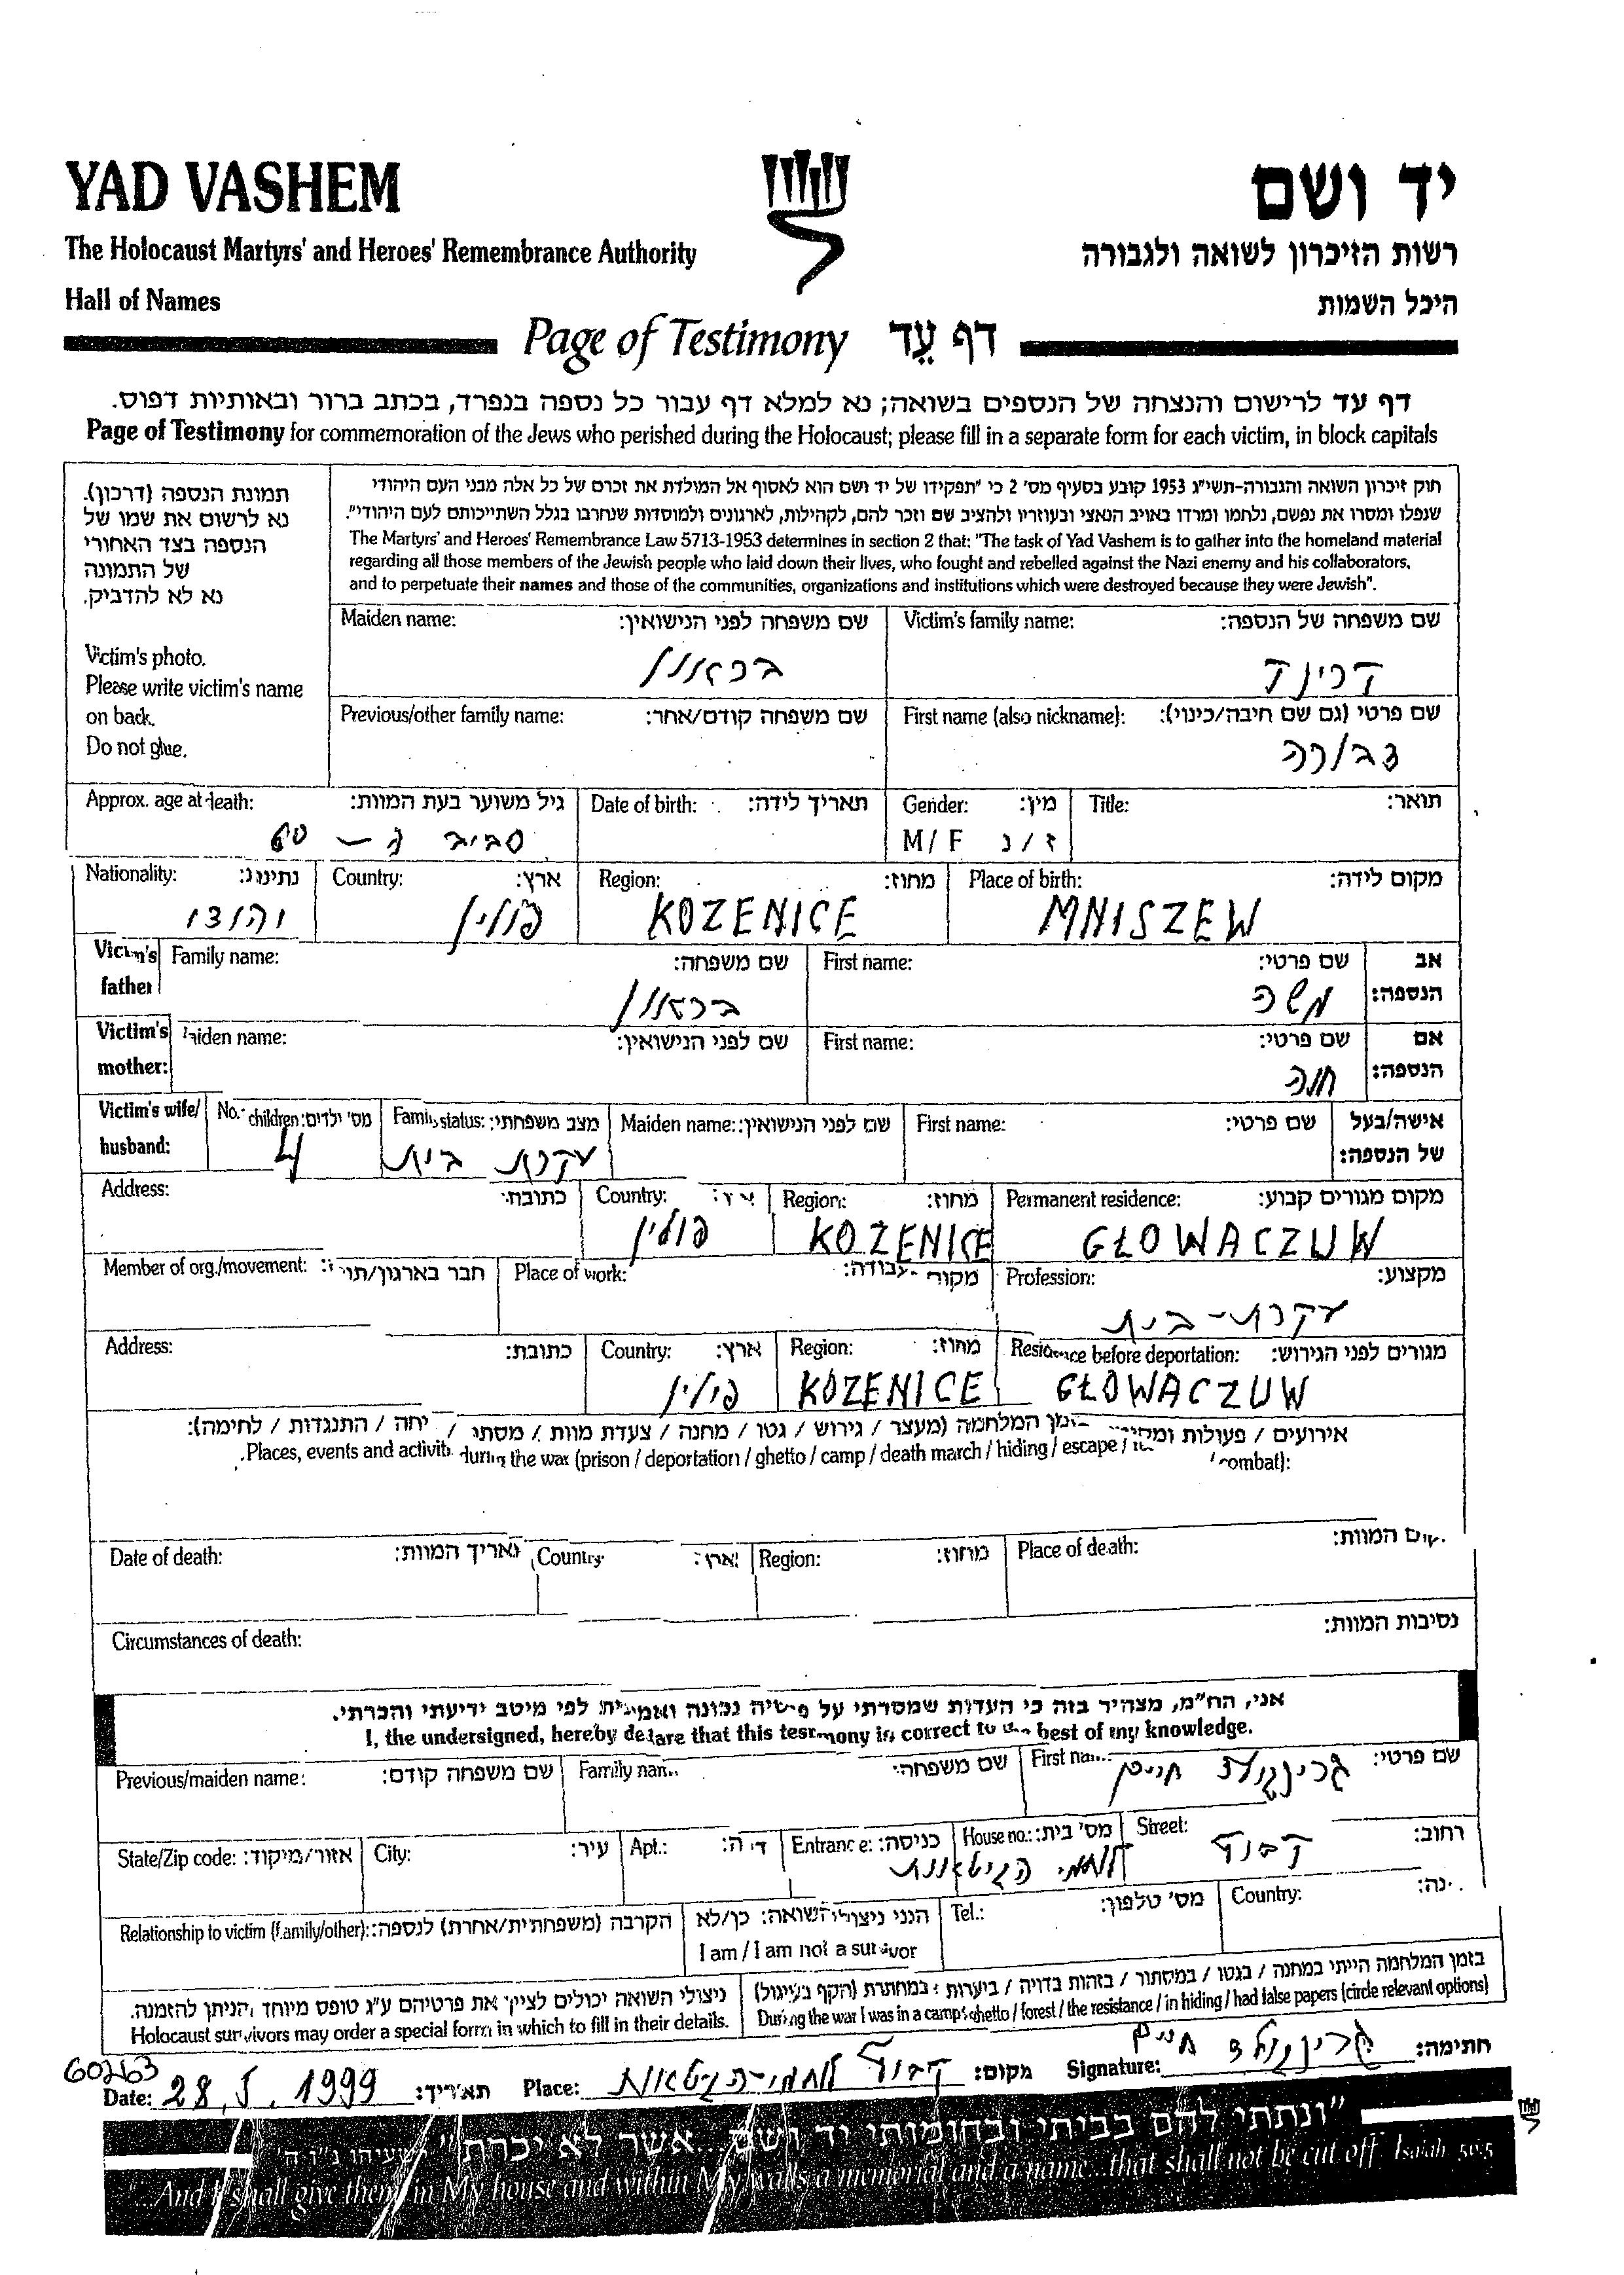 YAD VASHEM
יד ושם
The Holocaust Martyrs' and Heroes' Remembrance Authority
רשות הזיכרון לשואה ולגבורה
Hall of Names
היכל השמות
Page of Testimony דף עֵד
דף עד לרישום והנצחה של הנספים בשואה; נא למלא דף עבור כל נספה בנפרד, בכתב ברור ובאותיות דפוס.
Page of Testimony for commemoration of the Jews who perished during the Holocaust; please fill in a separate form for each victim, in block capitals
תמונת הנספה (דרכון).
נא לרשום את שמו של
הנספה בצד האחורי
של התמונה
נא לא להדביק.
Victim's photo.
Please write victim's name
on back.
Do not glue.
חוק זיכרון השואה והגבורה-תשי"ג 1953 קובע בסעיף מס' 2 כי "תפקידו של יד ושם הוא לאסוף אל המולדת את זכרם של כל אלה מבני העם היהודי
שנפלו ומסרו את נפשם, נלחמו ומרדו באויב הנאצי ובעוזריו ולהציב שם וזכר להם, לקהילות, לארגונים ולמוסדות שנחרבו בגלל השתייכותם לעם היהודי".
The Martyrs' and Heroes' Remembrance Law 5713-1953 determines in section 2 that: "The task of Yad Vashem is to gather into the homeland material
regarding all those members of the Jewish people who laid down their lives, who fought and rebelled against the Nazi enemy and his collaborators,
and to perpetuate their names and those of the communities, organizations and institutions which were destroyed because they were Jewish".
Maiden name: שם משפחה לפני הנישואין:
Victim's family name: שם משפחה של הנספה:
Previous/other family name: שם משפחה קודם/אחר:
First name (also nickname): שם פרטי (גם שם חיבה/כינוי):
דבורה
Approx. age at death: גיל משוער בעת המוות:
סביב ל - 60
Date of birth: תאריך לידה:
Gender: מין:
M / F ז / נ
Title: תואר:
Nationality: נתינות:
יהודי
Country: ארץ:
פולין
Region: מחוז:
KOZENICE
Place of birth: מקום לידה:
MNISZEW
Victim's father Family name: שם משפחה:
First name: שם פרטי: אב הנספה:
משה
Victim's mother: Maiden name: שם לפני הנישואין:
First name: שם פרטי: אם הנספה:
חנה
Victim's wife/ husband: No. children: מס' ילדים:
4
Family status: מצב משפחתי:
עקרת בית
Maiden name: שם לפני הנישואין:
First name: שם פרטי: אישה/בעל של הנספה:
Address: כתובת:
Country:
פולין
Region: מחוז:
KOZENICE
Permanent residence: מקום מגורים קבוע:
GŁOWACZUW
Member of org./movement: חבר בארגון/
Place of work: מקום עבודה:
Profession: מקצוע:
עקרת-בית
Address: כתובת:
Country: ארץ:
פולין
Region: מחוז:
KOZENICE
Residence before deportation: מגורים לפני הגירוש:
GŁOWACZUW
אירועים / פעולות המלחמה (מעצר / גירוש / גטו / מחנה / צעדת מוות / מסתור / התנגדות / לחימה):
Places, events and activit during the war (prison / deportation / ghetto / camp / death march / hiding / escape / combat):
Date of death: תאריך המוות:
Country: ארץ:
Region: מחוז:
Place of death: המוות:
Circumstances of death: נסיבות המוות:
אני, הח"מ, מצהיר בזה כי העדות שמסרתי על פרטיה נכונה ואמיתית לפי מיטב ידיעתי והכרתי.
I, the undersigned, hereby declare that this testimony is correct to the best of my knowledge.
Previous/maiden name: שם משפחה קודם:
Family name שם משפחה:
First name שם פרטי:
חיים
State/Zip code: אזור/מיקוד:
City: עיר:
Apt.: דירה:
Entrance: כניסה:
House no.: מס' בית:
Street: רחוב:
קבוץ לוחמי הגיטאות
Relationship to victim (family/other): הקרבה (משפחתית/אחרת) לנספה:
הנני ניצול השואה: כן/לא
I am / I am not a survivor
Tel.: מס' טלפון:
Country:
ניצולי השואה יכולים לציין את פרטיהם ע"ג טופס מיוחד הניתן להזמנה.
Holocaust survivors may order a special form in which to fill in their details.
בזמן המלחמה הייתי במחנה / בגטו / במסתור / בזהות בדויה / ביערות / במחתרת (הקף בעיגול)
During the war I was in a camp / ghetto / forest / the resistance / in hiding / had false papers (circle relevant options)
60263
Date: 28.5.1999 תאריך:
Place: קבוץ לוחמי-הגיטאות מקום:
Signature: חיים חתימה:
"ונתתי להם בביתי ובחומותי יד ושם... אשר לא יכרת" ישעיהו נ"ו ה'
"...And I shall give them in My house and within My walls a memorial and a name...that shall not be cut off" Isaiah 56:5